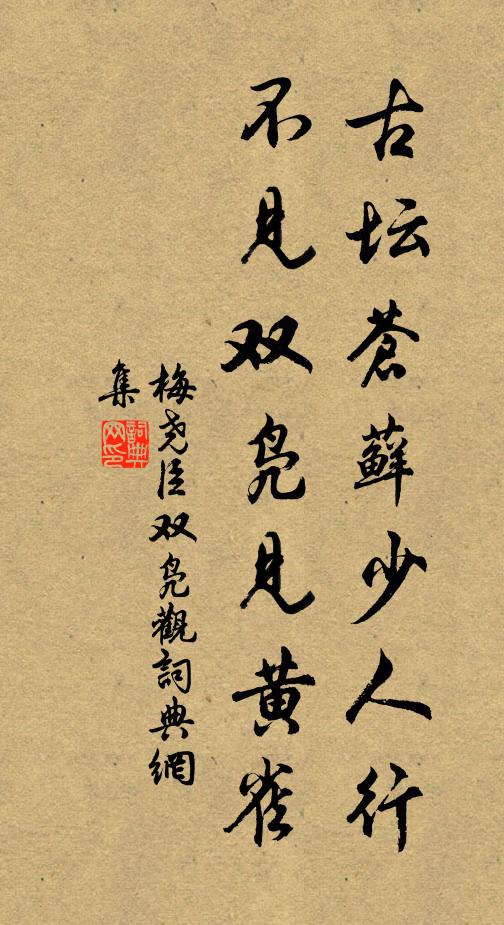 古坛苍藓少人行
不见双凫见黄雀
梅尧臣双凫觀詞典網
集
詞典
网印